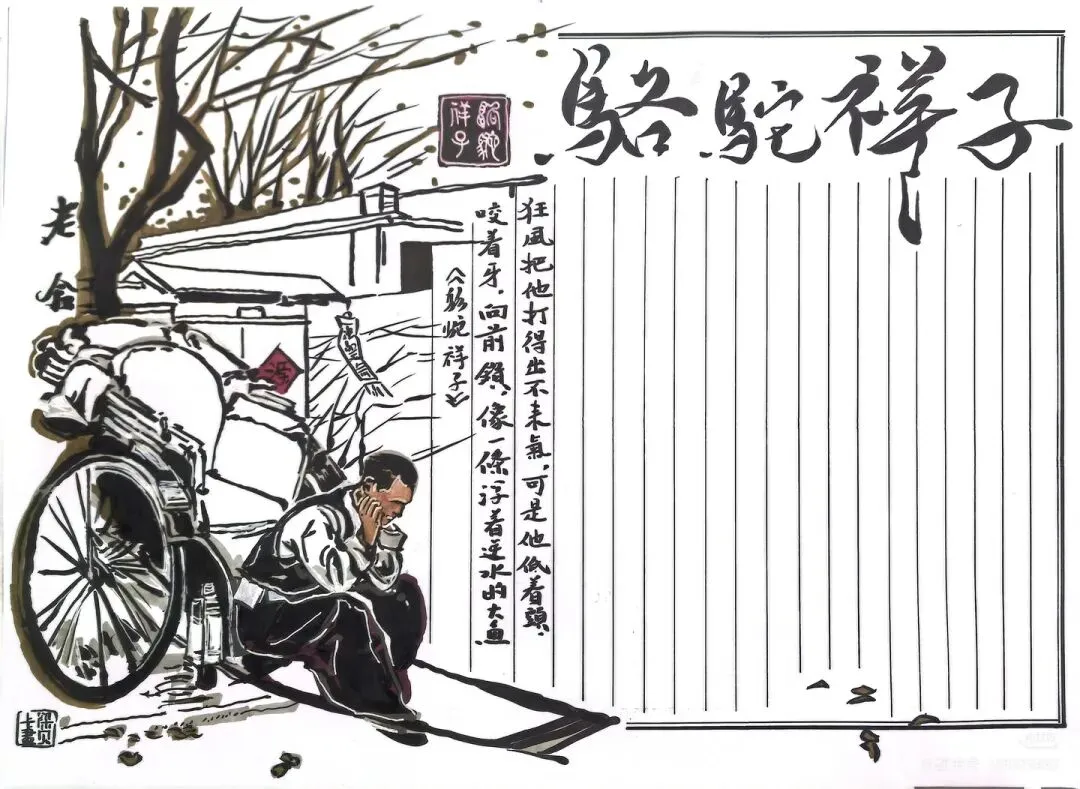 駱駝祥子
駱駝
祥子
狂風把他打得出不來氣,可是他低着頭,
咬着牙,向前鑽,像一條浮着逆水的大魚
《駱駝祥子》
老舍